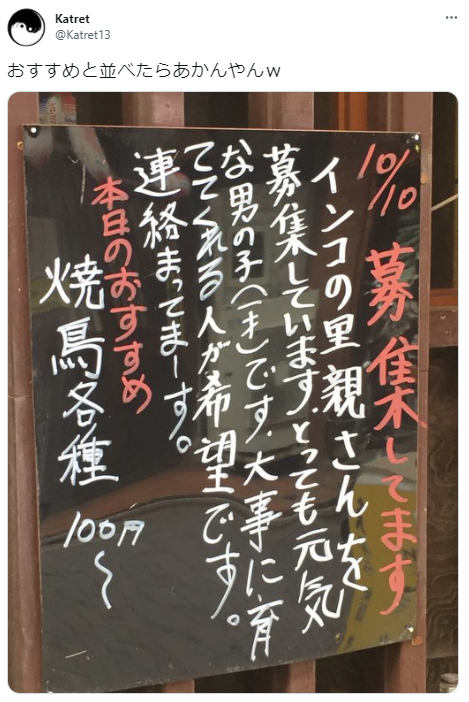 Katret
@Katret13
おすすめと並べたらあかんやんｗ
10/10 募集してます
インコの里親さんを
募集しています。とっても元気
な男の子(オ)です。大事に育
ててくれる人が希望です。
連絡まってまーす。
本日のおすすめ
焼鳥各種
100円〜